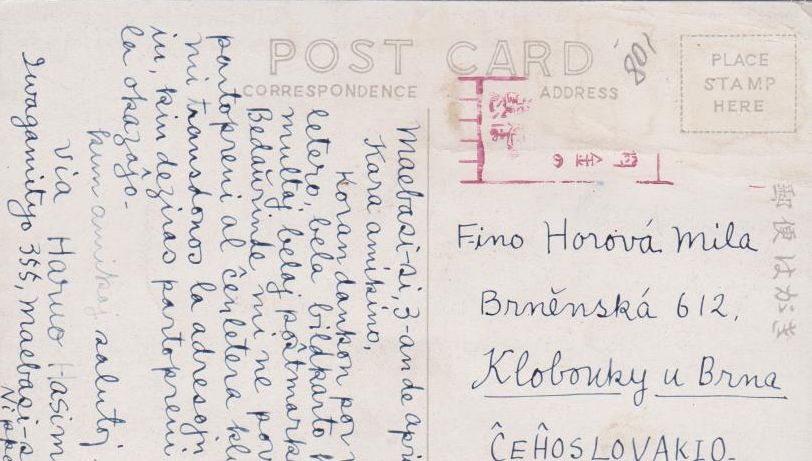 POST CARD
CORRESPONDENCE
ADDRESS
PLACE
STAMP
HERE
801
郵便はがき
Maebasi-si, 3-an de apri
Kara amikino,
Koran dankon por
letero, bela bildkarto
multaj belaj poŝtmark
Bedaŭrinde mi ne pov
partopreni al ĉenletera klu
mi transdonos la adresojn
iu, kiu deziras partopreni
la okazojo.
kun amikaj salutoj
Via Haruo Hasim
Iwagamityo 355, Maebasi-s
Nippo
Fino Horová Mila
Brněnská 612.
Klobouky u Brna
ĈEĤOSLOVAKIO.